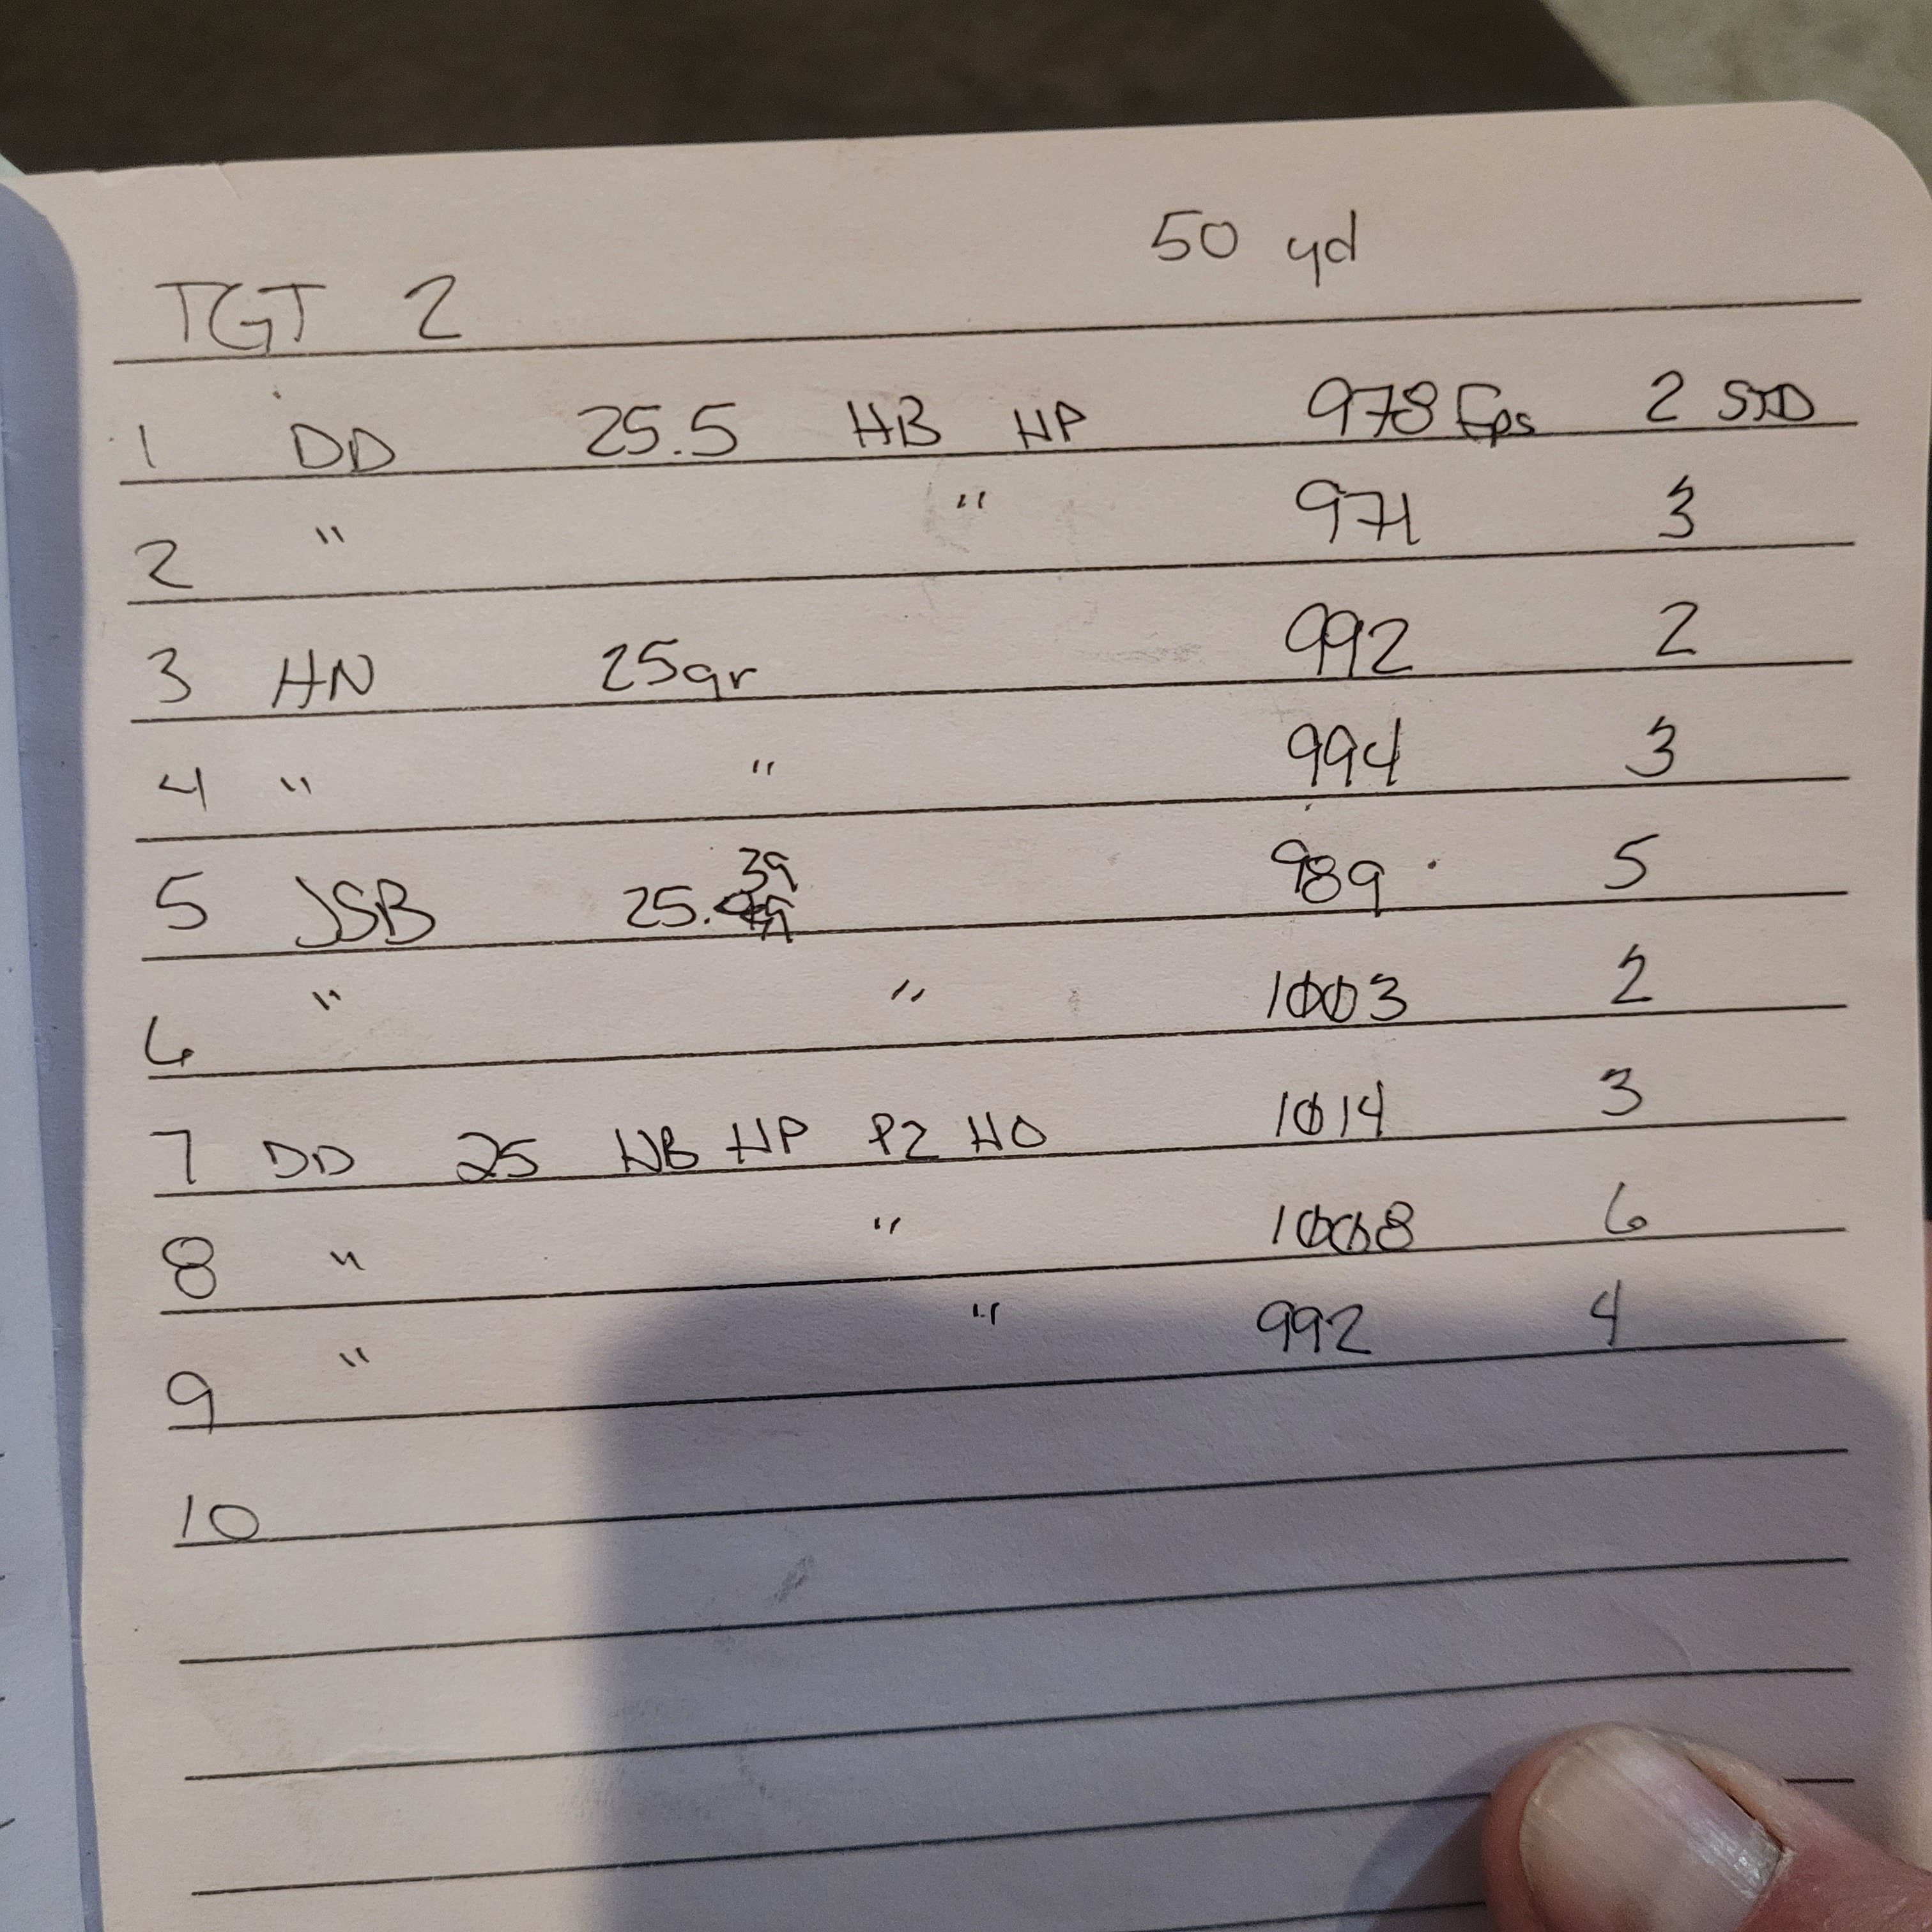 50 yd
TGT 2
1 DD 25.5 HB HP 978 fps 2 STD
2 " " 971 3
3 HN 25gr 992 2
4 " " 994 3
5 JSB 25.39 989 5
6 " " 1003 2
7 DD 25 HB HP P2 HO 1014 3
8 " " 1008 6
9 " " 992 4
10